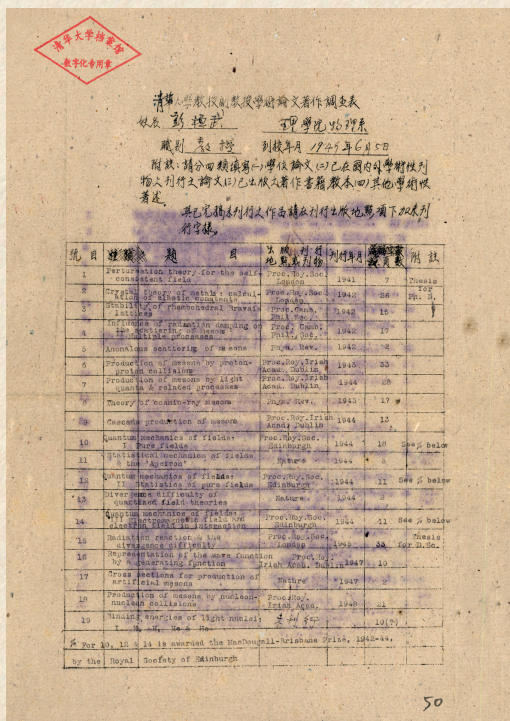 清华大学档案馆
数字化专用章
清華大學教授副教授學術論文著作調查表
姓名 彭桓武 理學院物理系
職别 教授 到校年月 1949年6月5日
附註：請分四類填寫(一)學位論文(二)已在國内外學術性刊
物上刊行之論文(三)已出版之著作書籍教本(四)其他學術性
著述。
其已完稿未刊行之作品請在刊行出版地點項下加未刊
行字樣。
號目 題 目 出版刊行 刊行年月 附註
1 Perturbation theory for the self- consistent field Proc.Roy.Soc. London 1941 7 Thesis for Ph. D.
2 Crystal theory of metals: calcul- ation of elastic constants Proc.Roy.Soc. London 1942 26
3 Stability of rhombohedral Bravais lattices Proc.Camb. Phil.Soc. 1942 15
4 Influence of radiation damping on the scattering of mesons Multiple processes Proc. Camb. Phil. Soc. 1942 17
5 Anomalous scattering of mesons Phys. Rev. 1942
6 Production of mesons by proton- proton collisions Proc.Roy.Irish Acad. Dublin 1943 33
7 Production of mesons by light quanta & related processes Proc.Roy.Irish Acad. Dublin 1944 28
8 Theory of cosmic-ray mesons Phys. Rev. 1943 17
9 Cascade production of mesons Proc.Roy.Irish Acad. Dublin 1944 13
10 Quantum mechanics of fields: I Pure fields Proc.Roy.Soc. Edinburgh 1944 18 See % below
11 Statistical mechanics of fields & the 'Apeiron' Nature 1944
12 Quantum mechanics of fields: II. Statistics of pure fields Proc.Roy.Soc. Edinburgh 1944 11 See % below
13 Divergence difficulty of quantized field theories Nature 1944 2
14 Quantum mechanics of fields: Electromagnetic field and electron field in interaction Proc.Roy.Soc. Edinburgh 1944 11 See % below
15 Radiation reaction & the divergence difficulty Proc.Roy.Soc. London 33 Thesis for D.Sc.
16 Representation of the wave function by a generating function Proc.Roy. Irish Acad. Dublin 1947 10
17 Cross sections for production of artificial mesons Nature 1947
18 Production of mesons by nucleon- nuclear collisions Proc.Roy. Irish Acad. 1948 21
19 Binding energies of light nuclei: 10(?)
% For 10, 12 & 14 is awarded the MacDougall-Brisbane Prize, 1942-44,
by the Royal Society of Edinburgh
50